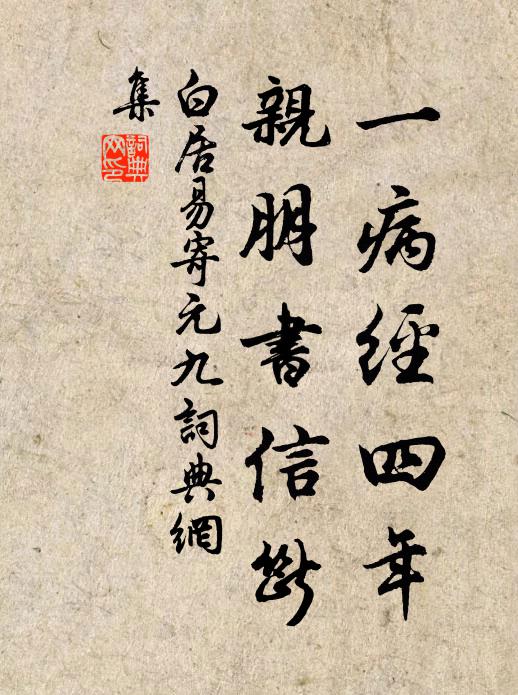 一病經四年
親朋書信斷
白居易寄元九詞典網
集
詞典
网印